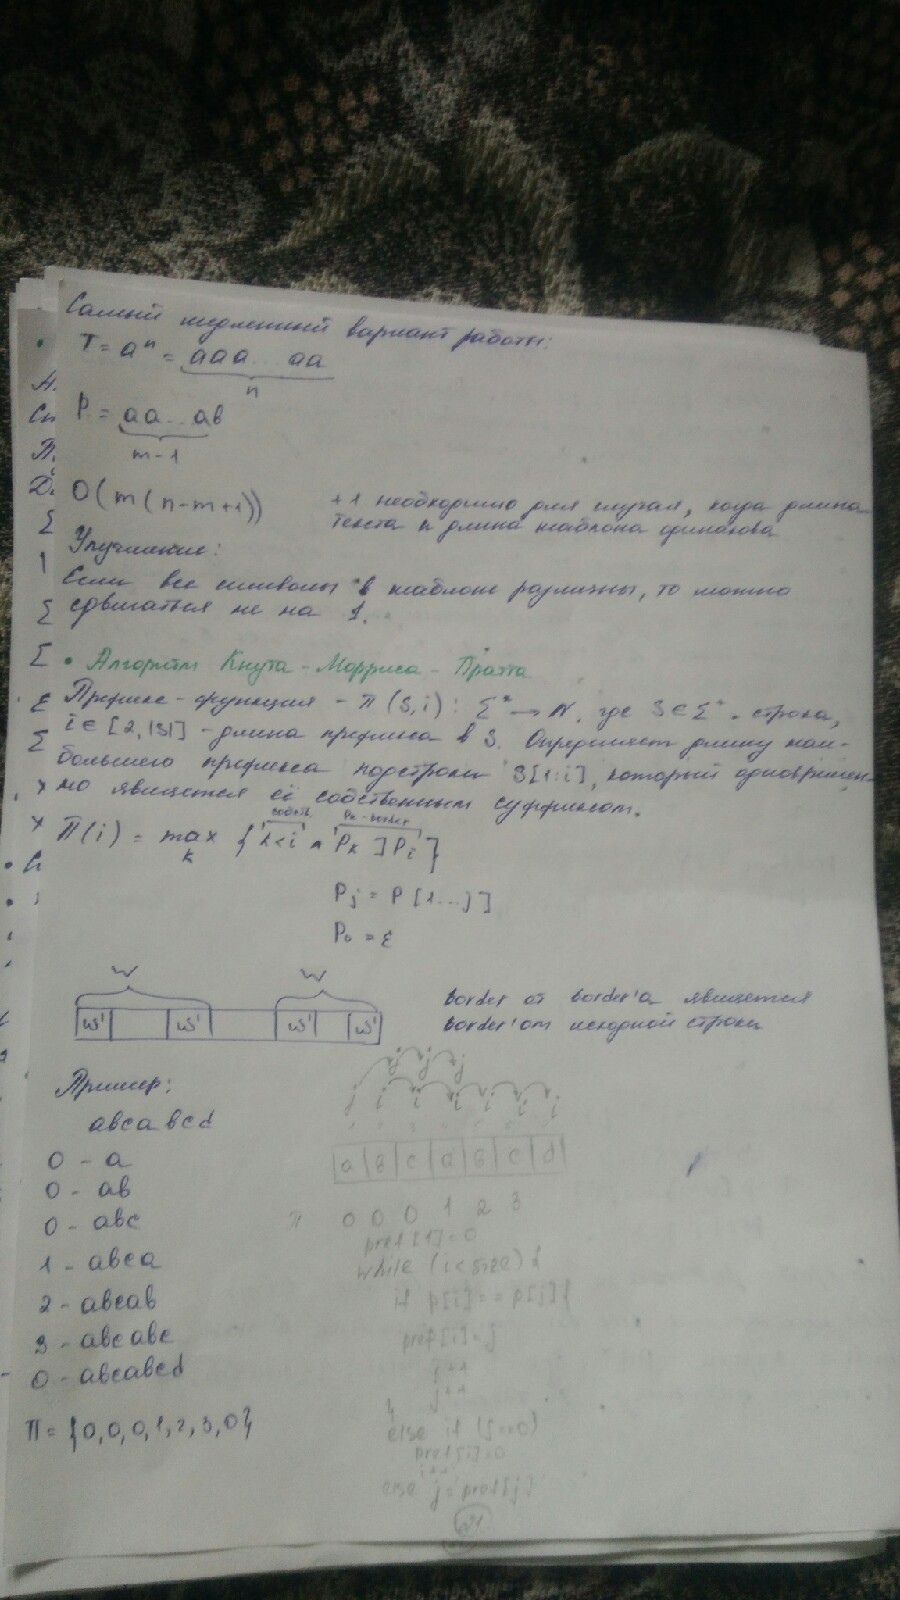 Самый медленный вариант работы:
T = aⁿ = aaa...aa
n
P = aa...ab
m-1
O(m(n-m+1))
+1 необходимо для случая, когда длина
текста и длина шаблона одинакова
Улучшение:
Если все символы в шаблоне различны, то можно
сдвигаться не на 1.
• Алгоритм Кнута-Морриса-Пратта
Префикс-функция - π(S,i): Σ* → N, где S∈Σ* - строка,
i∈[2,|S|] - длина префикса в S. Определяет длину наи-
большего префикса подстроки S[1:i], который одновремен-
но является её собственным суффиксом.
π(i) = max {k<i ∧ Pk ] Pi}
k
Pj = P[1...j]
P₀ = ε
W W
w' w' w' w'
border от border'а является
border'ом исходной строки
Пример:
abcabcd
0 - a
0 - ab
0 - abc
1 - abca
2 - abcab
3 - abcabc
0 - abcabcd
π = {0,0,0,1,2,3,0}
j j j
j i i i i i i
a b c a b c d
π 0 0 0 1 2 3
pref[1]=0
while (i<size) {
if p[i]==p[j]{
pref[i]=j
i++
j++
}
else if (j==0)
pref[i]=0
i++
else j=pref[j]